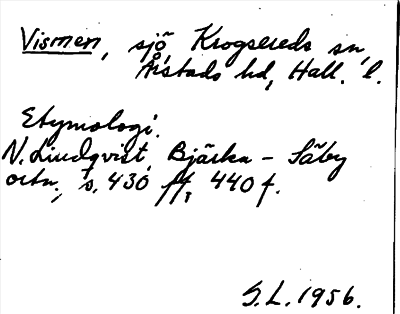 Vismen, sjö, Krogsereds sn,
Årstads hd, Hall. l.
Etymologi.
N. Lindqvist, Bjärka - Säby
ortn., s. 430 ff., 440 f.
S.L. 1956.